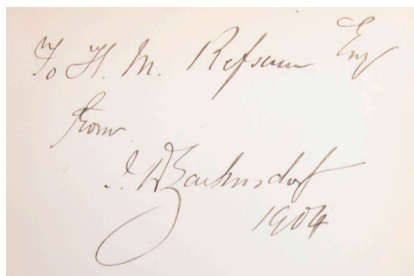 To H. M. Refsum Esq
from
J W Zaehnsdorf
1904